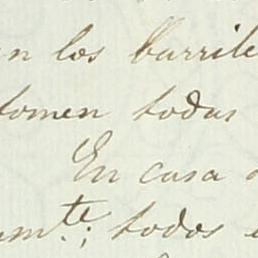 en los barrile
tomen todas
En casa
mte; todos